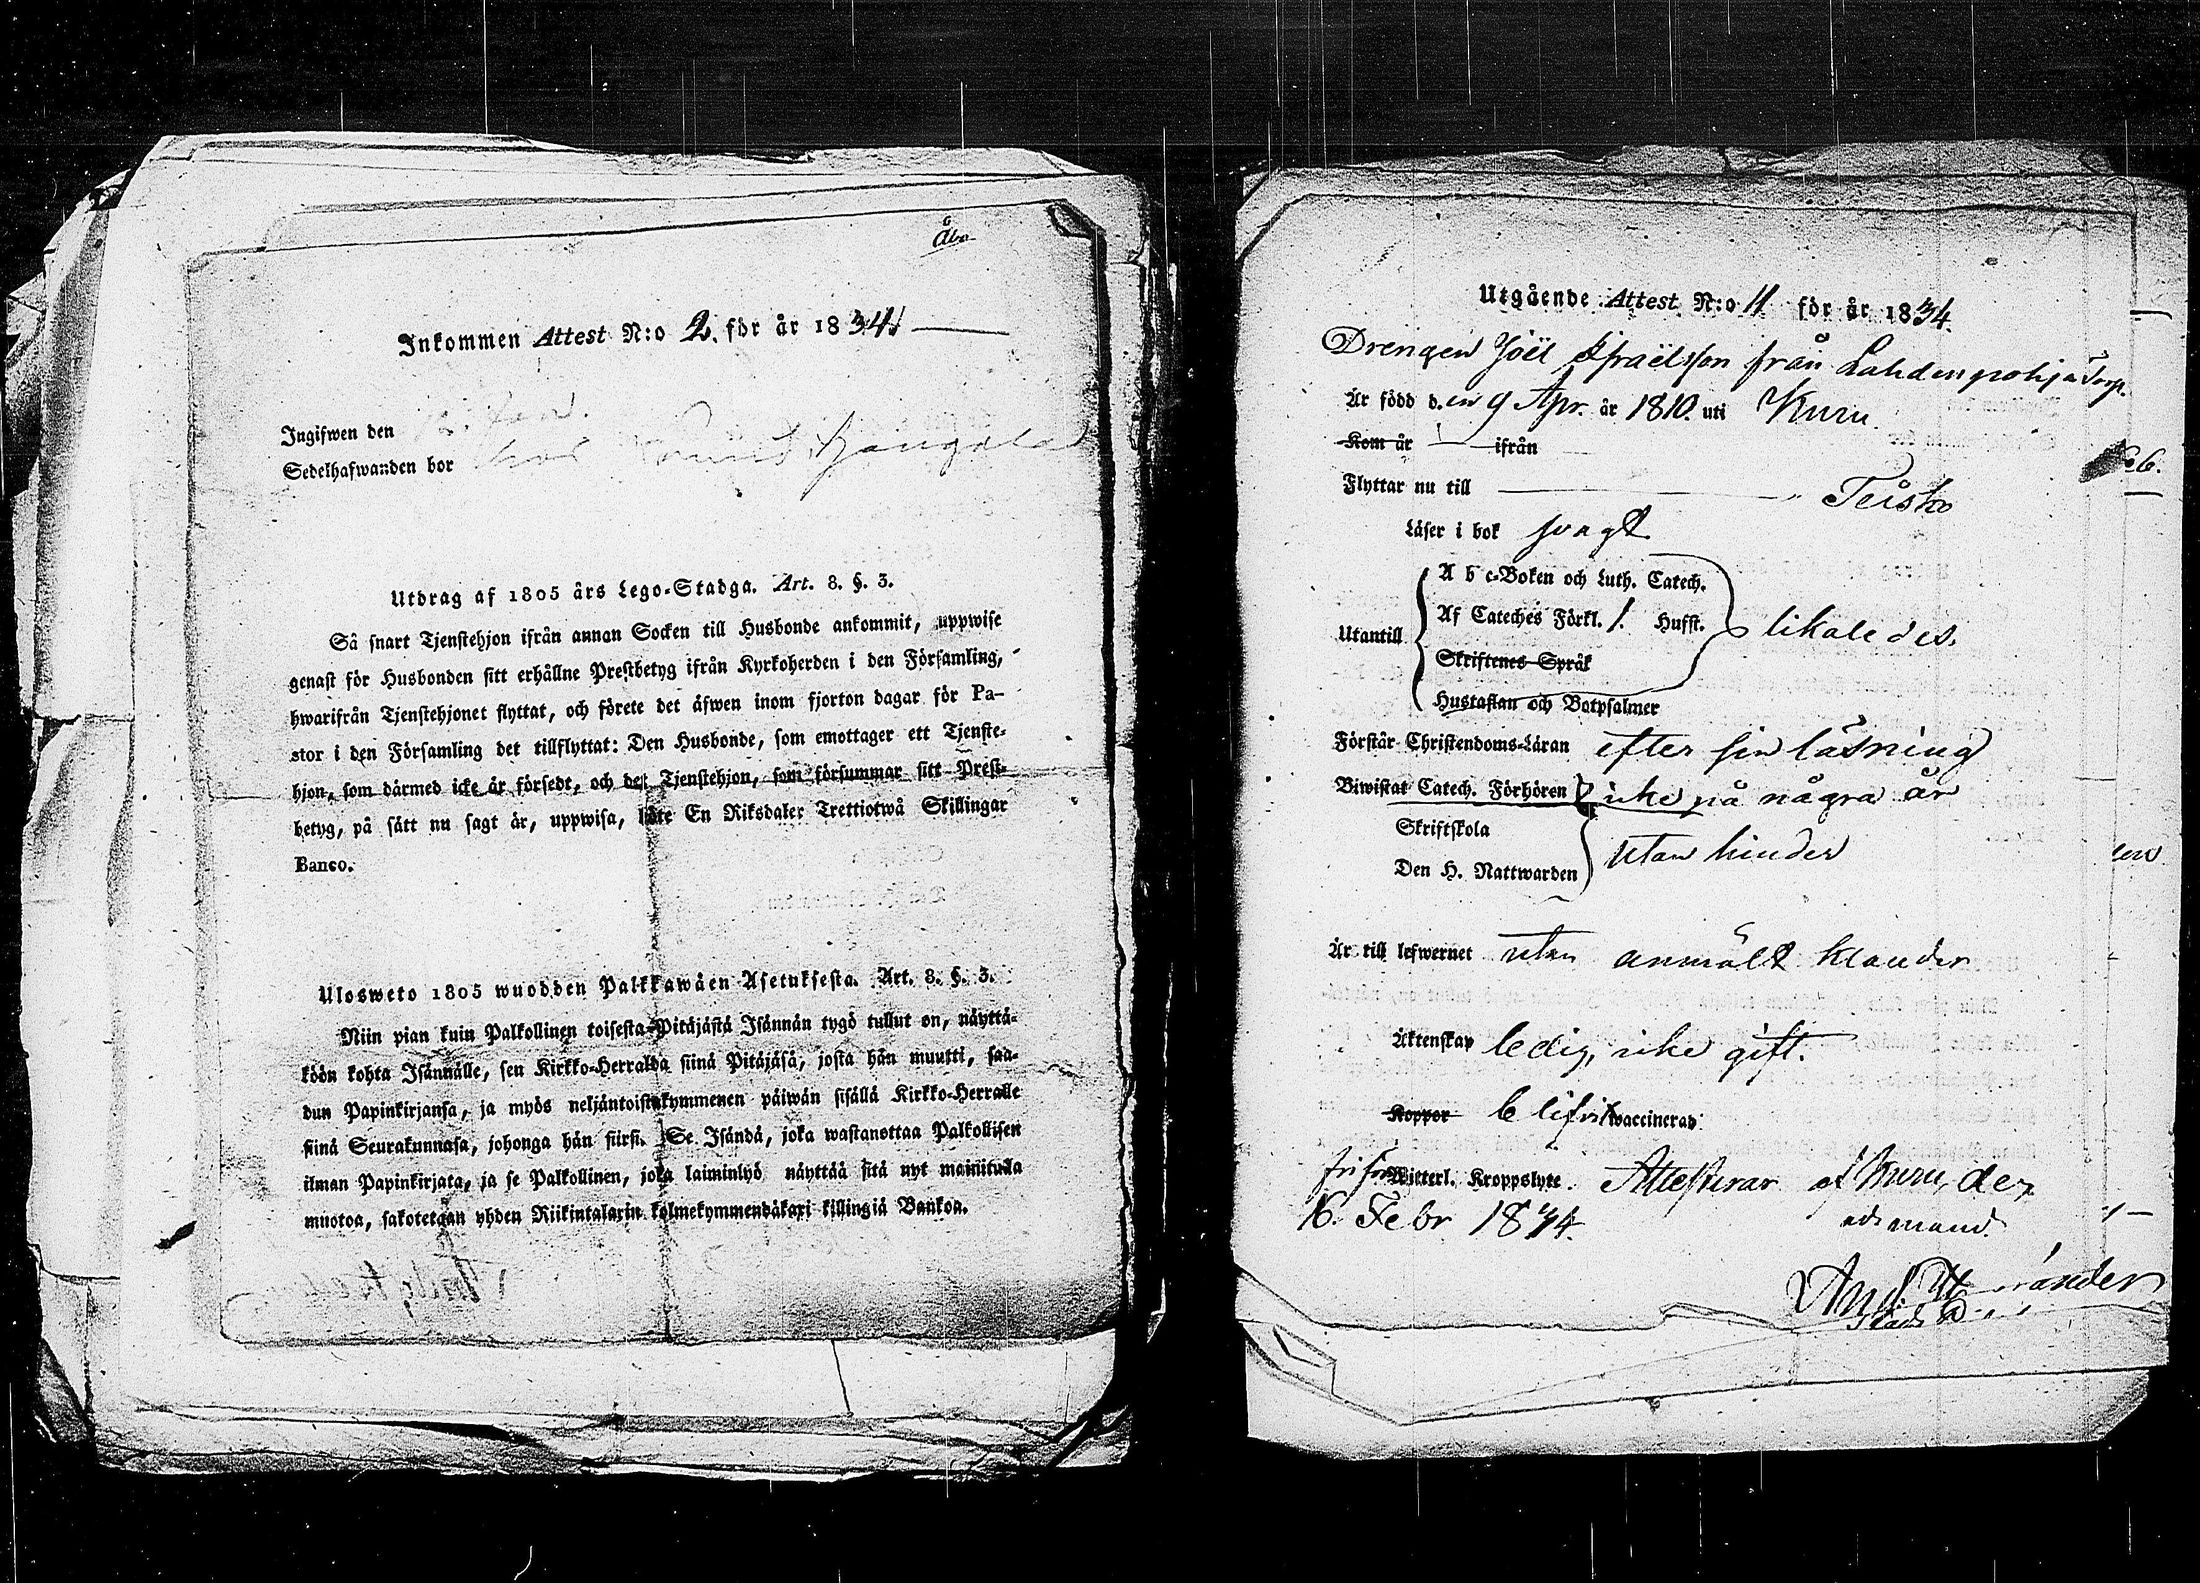 Åbo
Inkommen Attest N:o 2. för år 1834.
Ingifwen den
Sedelhafwanden bor hos Kangala
Utdrag af 1805 års Lego-Stadga. Art. 8. §. 3.
Så snart Tjenstehjon ifrån annan Socken till Husbonde ankommit, uppwise
genast för Husbonden sitt erhållne Prestbetyg ifrån Kyrkoherden i den Församling,
hwarifrån Tjenstehjonet flyttat, och förete det äfwen inom fjorton dagar för Pa-
stor i den Församling det tillflyttat: Den Husbonde, som emottager ett Tjenste-
hjon, som därmed icke är försedt, och det Tjenstehjon, som försummar sitt Prest-
betyg, på sätt nu sagt är, uppwisa, böte En Riksdaler Trettiotwå Skillingar
Banco.
Ulosweto 1805 wuodden Palkkawäen Asetuksesta. Art. 8. §. 3.
Niin pian kuin Palkollinen toisesta Pitäjästä Isännän tygö tullut on, näyttä-
köön kohta Isännälle, sen Kirkko-Herralda siinä Pitäjäsä, josta hän muutti, saa-
dun Papinkirjansa, ja myös neljäntoistakymmenen päiwän sisällä Kirkko-Herralle
siinä Seurakunnasa, johonga hän siirsi. Se Isändä, joka wastanottaa Palkollisen
ilman Papinkirjata, ja se Palkollinen, joka laiminlyö näyttää sitä nyt mainitulla
muotoa, sakotetaan yhden Riikintalarin kolmekymmendäkaxi killingiä Bankoa.
Utgående Attest N:o 11 för år 1834.
Drengen Joël Israëlsson från Lahdenpohja Torp.
Är född d.en 9 Apr. år 1810. uti Kuru.
Kom år ifrån
Flyttar nu till Teisko
Läser i bok svagt
A b c-Boken och Luth. Catech.
Af Cateches Förkl. 1. Husst.
Utantill likaledes.
Skriftenes Språk
Hustaflan och Botpsalmer
Förstår Christendoms-Läran efter sin läsning
Biwistat Catech. Förhören icke på några år
Skriftskola
Den H. Nattwarden utan hinder
Är till lefwernet utan anmält klander
Äktenskap ledig, icke gift.
Koppor blifvit waccinerad
fri från Witterl. Kroppslyte. Attesterar af Kuru, den
16. Febr 1834.